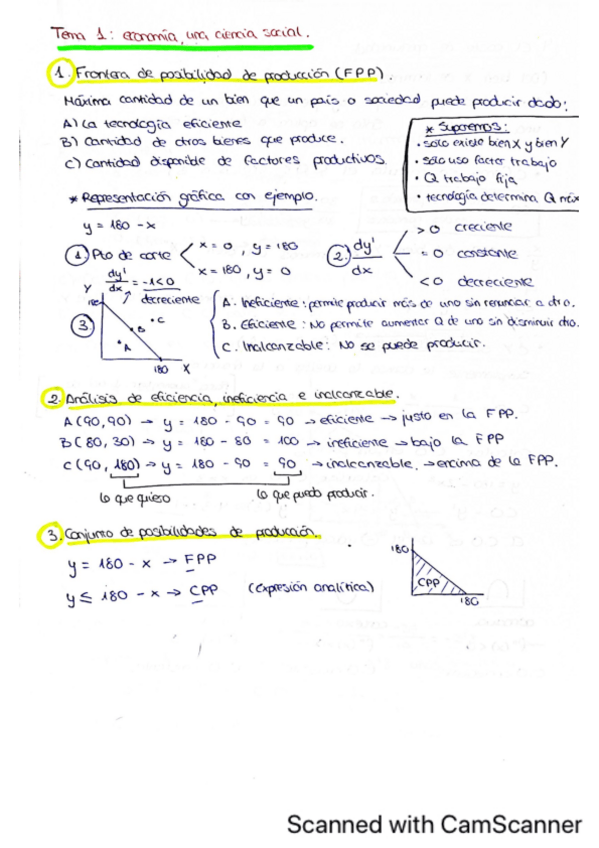 Tema 1: economía, una ciencia social.
1. Frontera de posibilidad de producción (FPP).
Máxima cantidad de un bien que un país o sociedad puede producir dado:
A) La tecnología eficiente
B) Cantidad de otros bienes que produce.
C) Cantidad disponible de factores productivos.
* Suponemos:
• solo existe bien X y bien Y
• sólo uso factor trabajo
• Q trabajo fija
• tecnología determina Q máx
* Representación gráfica con ejemplo.
y = 180 - x
1. Pto de corte
x = 0, y = 180
x = 180, y = 0
2. dy'/dx
> 0 creciente
= 0 constante
< 0 decreciente
dy'/dx = -1 < 0
decreciente
3
Y
180
• C
• B
• A
180 X
A. Ineficiente: permite producir más de uno sin renunciar a otro.
B. Eficiente: No permite aumentar Q de uno sin disminuir otro.
C. Inalcanzable: No se puede producir.
2. Análisis de eficiencia, ineficiencia e inalcanzable.
A (90, 90) → y = 180 - 90 = 90 → eficiente → justo en la FPP.
B (80, 30) → y = 180 - 80 = 100 → ineficiente → bajo la FPP
C (90, 180) → y = 180 - 90 = 90 → inalcanzable, → encima de la FPP.
lo que quiero
lo que puedo producir.
3. Conjunto de posibilidades de producción.
y = 180 - x → FPP
y ≤ 180 - x → CPP (expresión analítica)
180
CPP
180
Scanned with CamScanner